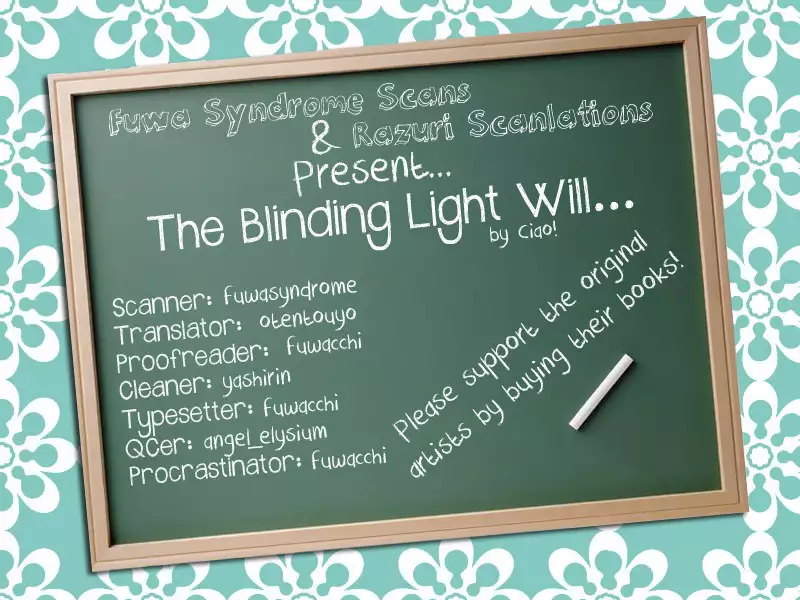 Fuwa Syndrome Scans
& Razuri Scanlations
Present...
The Blinding Light Will...
by Ciao!
Scanner: fuwasyndrome
Translator: otentouyo
Proofreader: fuwacchi
Cleaner: yashirin
Typesetter: fuwacchi
QCer: angel_elysium
Procrastinator: fuwacchi
Please support the original
artists by buying their books!